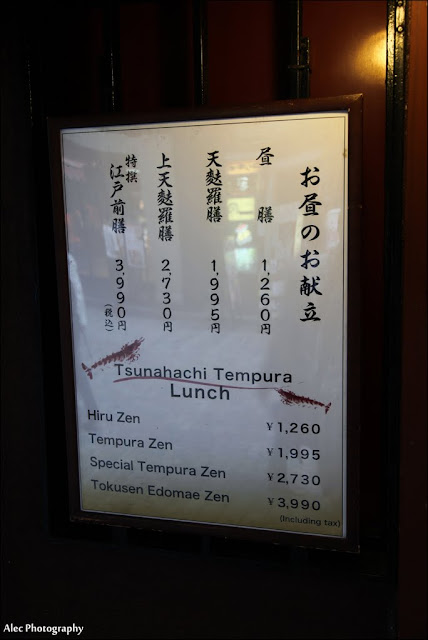 お昼のお献立
昼 膳 1,260円
天麩羅膳 1,995円
上天麩羅膳 2,730円
特撰 江戸前膳 3,990円
(税込)
Tsunahachi Tempura
Lunch
Hiru Zen ¥1,260
Tempura Zen ¥1,995
Special Tempura Zen ¥2,730
Tokusen Edomae Zen ¥3,990
(Including tax)
Alec Photography